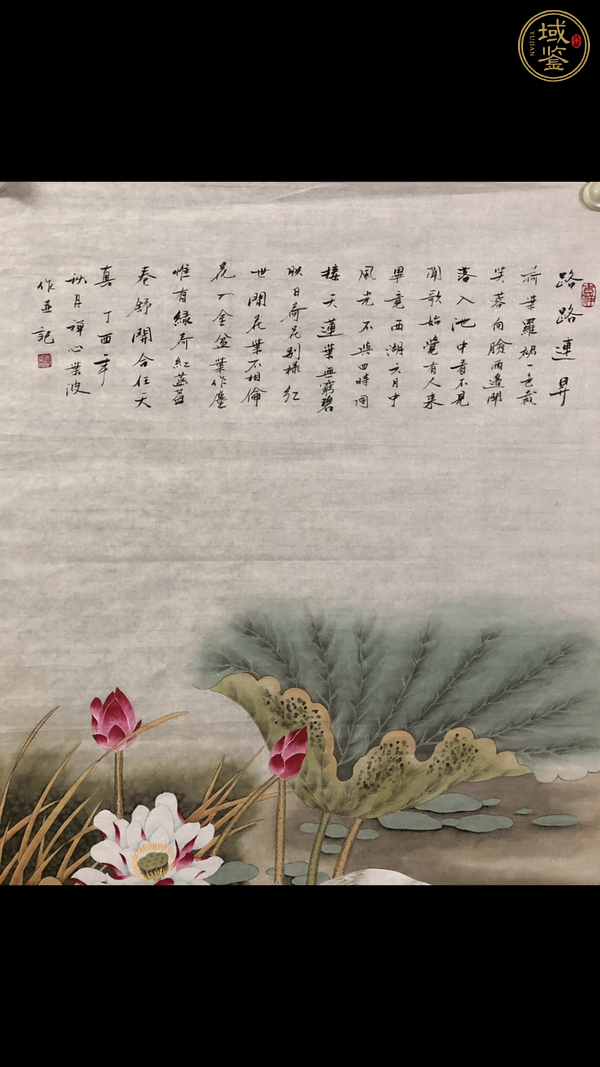 域鉴
YUJIAN
路路連昇
荷葉羅裙一色裁
芙蓉向臉兩邊開
落入池中看不見
聞歌始覺有人来
畢竟西湖六月中
風光不與四時同
接天蓮葉無窮碧
映日荷花别樣紅
世間花葉不相倫
花入金盆葉作塵
惟有緑荷紅菡萏
卷舒開合任天
真丁酉年
秋月禪心葉波
作並記